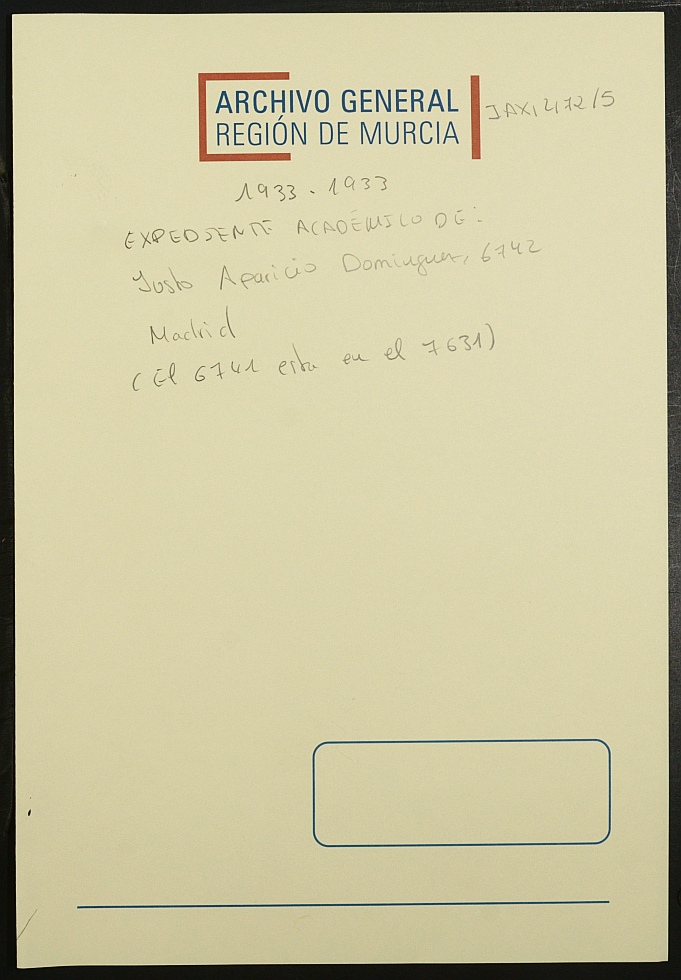 ARCHIVO GENERAL
REGIÓN DE MURCIA
JAX,2172/5
1933-1933
EXPEDIENTE ACADÉMICO DE:
Justo Aparicio Dominguez, 6742
Madrid
(El 6741 esta en el 7631)